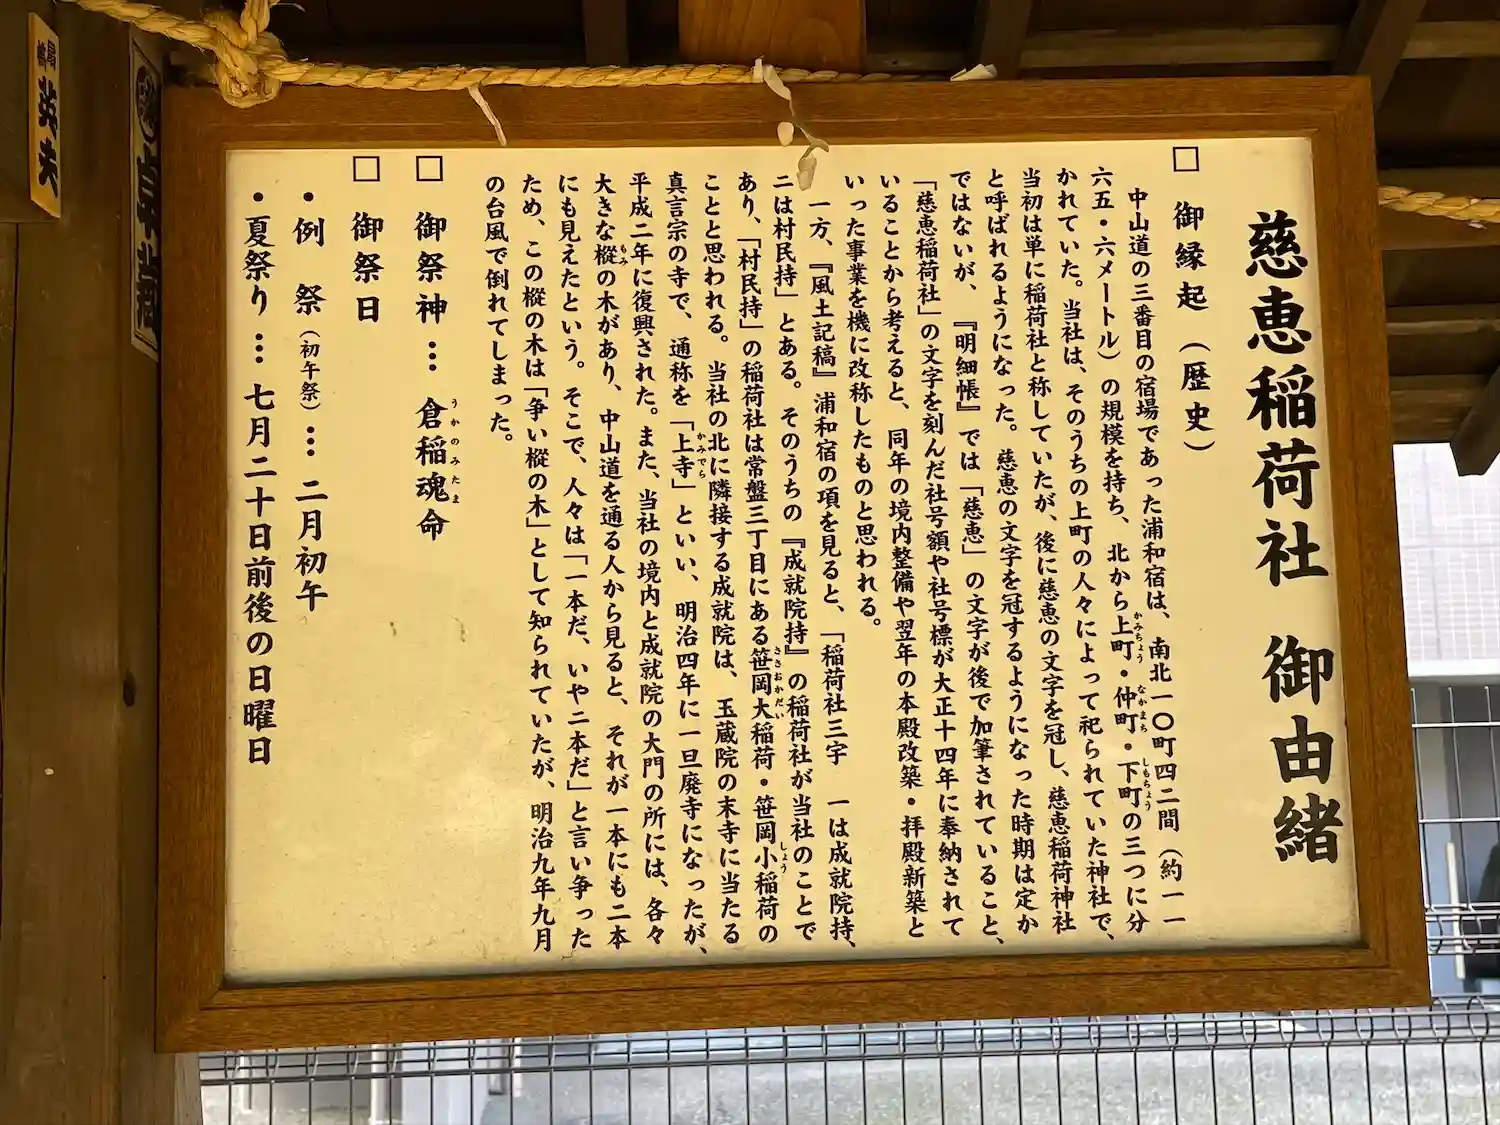 慈恵稲荷社 御由緒
□ 御縁起（歴史）
中山道の三番目の宿場であった浦和宿は、南北一〇町四二間（約一一
六五・六メートル）の規模を持ち、北から上町・仲町・下町の三つに分
かみちょう なかまち しもちょう
かれていた。当社は、そのうちの上町の人々によって祀られていた神社で、
当初は単に稲荷社と称していたが、後に慈恵の文字を冠し、慈恵稲荷神社
と呼ばれるようになった。慈恵の文字を冠するようになった時期は定か
ではないが、『明細帳』では「慈恵」の文字が後で加筆されていること、
「慈恵稲荷社」の文字を刻んだ社号額や社号標が大正十四年に奉納されて
いることから考えると、同年の境内整備や翌年の本殿改築・拝殿新築と
いった事業を機に改称したものと思われる。
一方、『風土記稿』浦和宿の項を見ると、「稲荷社三宇 一は成就院持、
二は村民持」とある。そのうちの『成就院持』の稲荷社が当社のことで
あり、「村民持」の稲荷社は常盤三丁目にある笹岡大稲荷・笹岡小稲荷の
ささおかだい しょう
ことと思われる。当社の北に隣接する成就院は、玉蔵院の末寺に当たる
真言宗の寺で、通称を「上寺」といい、明治四年に一旦廃寺になったが、
かみでら
平成二年に復興された。また、当社の境内と成就院の大門の所には、各々
大きな樅の木があり、中山道を通る人から見ると、それが一本にも二本
もみ
にも見えたという。そこで、人々は「一本だ、いや二本だ」と言い争った
ため、この樅の木は「争い樅の木」として知られていたが、明治九年九月
の台風で倒れてしまった。
□ 御祭神… 倉稲魂命
うかのみたま
□ 御祭日
・例 祭（初午祭）… 二月初午
・夏祭り… 七月二十日前後の日曜日
英夫